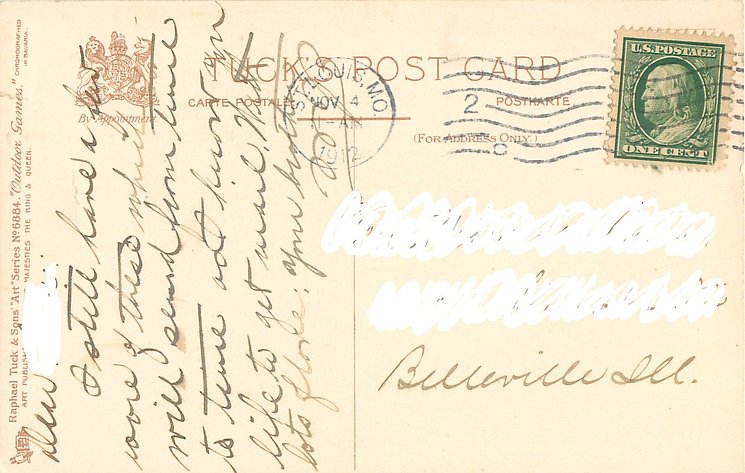 TUCK'S POST CARD
CARTE POSTALE
POSTKARTE
(FOR ADDRESS ONLY.)
By Appointment
ST. LOUIS, MO.
NOV 4
-AM
1912
2
U.S. POSTAGE
ONE CENT
Belleville Ill.
Raphael Tuck & Sons' "Art" Series No 6884. "Outdoor Games."
ART PUBLIS MAJESTIES THE KING & QUEEN.
CHROMOGRAPHED
IN BAVARIA.
Dear
I still have a few
more of these which
will send from time
to time
life to get mail. With
lots of love. Your brother